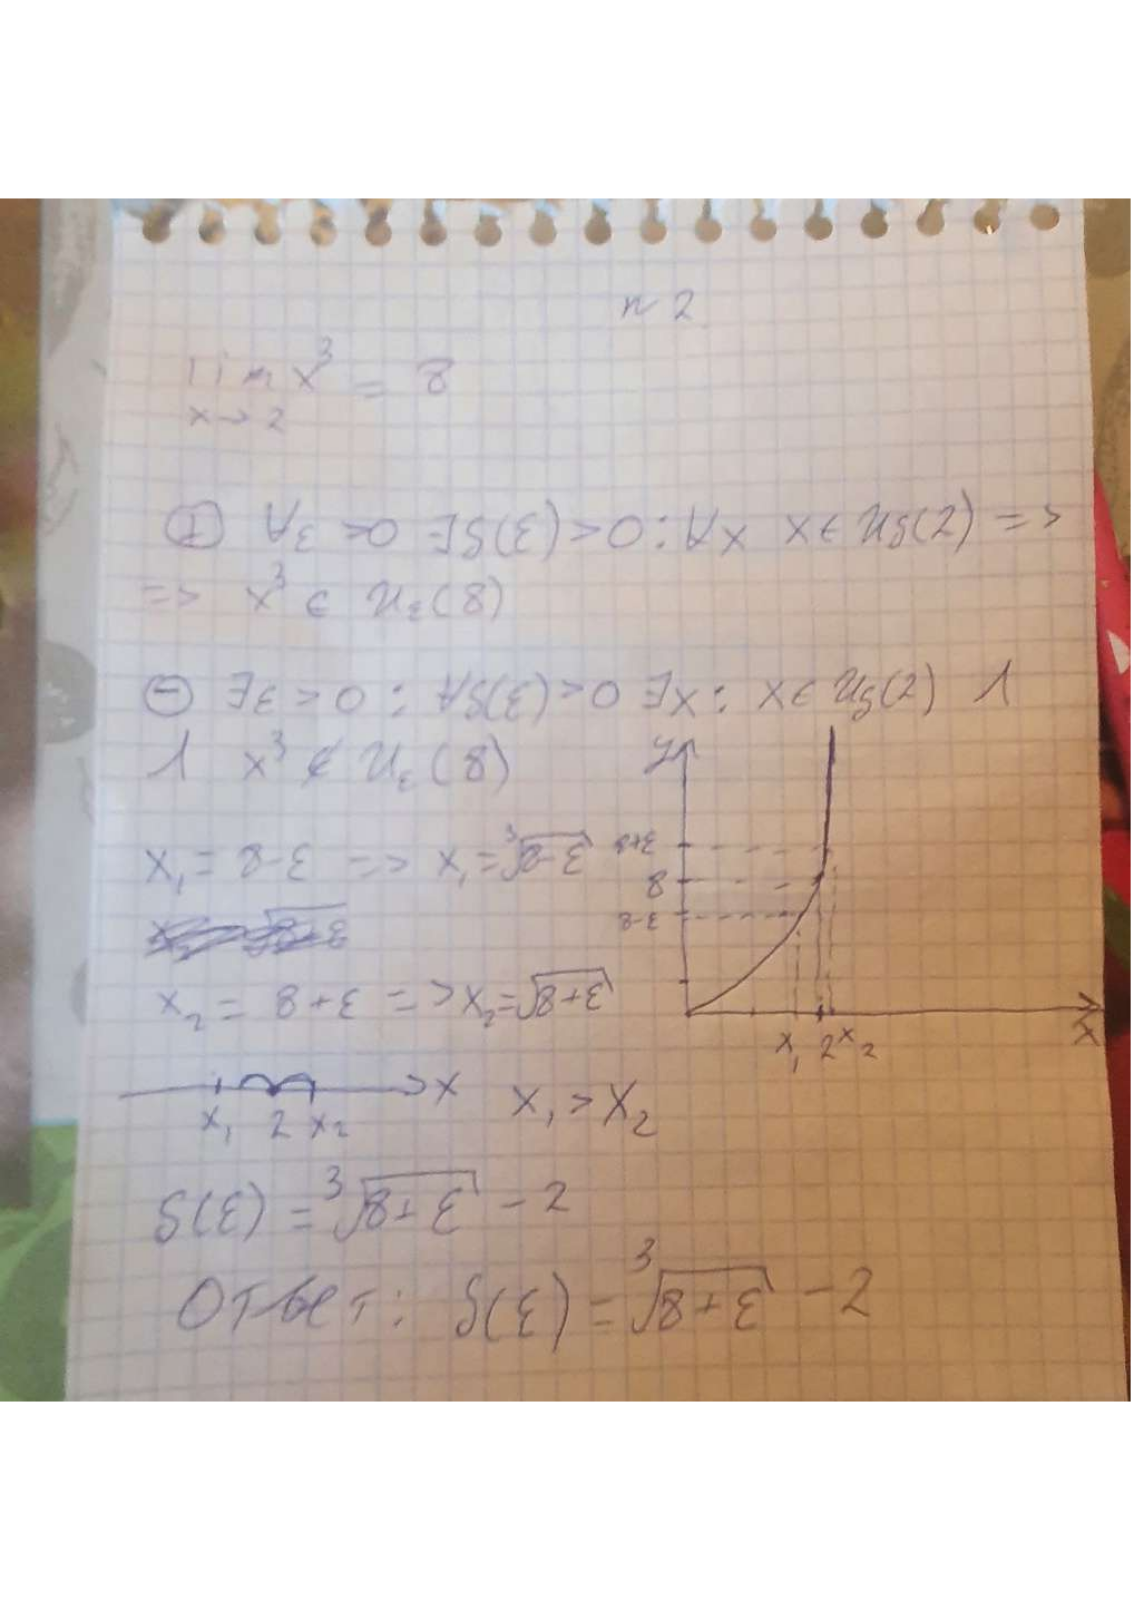 n 2
lim x³ = 8
x → 2
⊕ ∀ε > 0 ∃δ(ε) > 0 : ∀x x ∈ Uδ(2) =>
=> x³ ∈ Uε(8)
⊖ ∃ε > 0 : ∀δ(ε) > 0 ∃x : x ∈ Uδ(2) Λ
Λ x³ ∉ Uε(8)
x₁ = 8-ε => x₁ = ³√(8-ε)
x₂ = 8+ε => x₂ = √(8+ε)
y
8+ε
8
8-ε
x₁ 2 x₂
x
x
x₁ 2 x₂
x₁ > x₂
δ(ε) = ³√(8+ε) - 2
Ответ: δ(ε) = ³√(8+ε) - 2